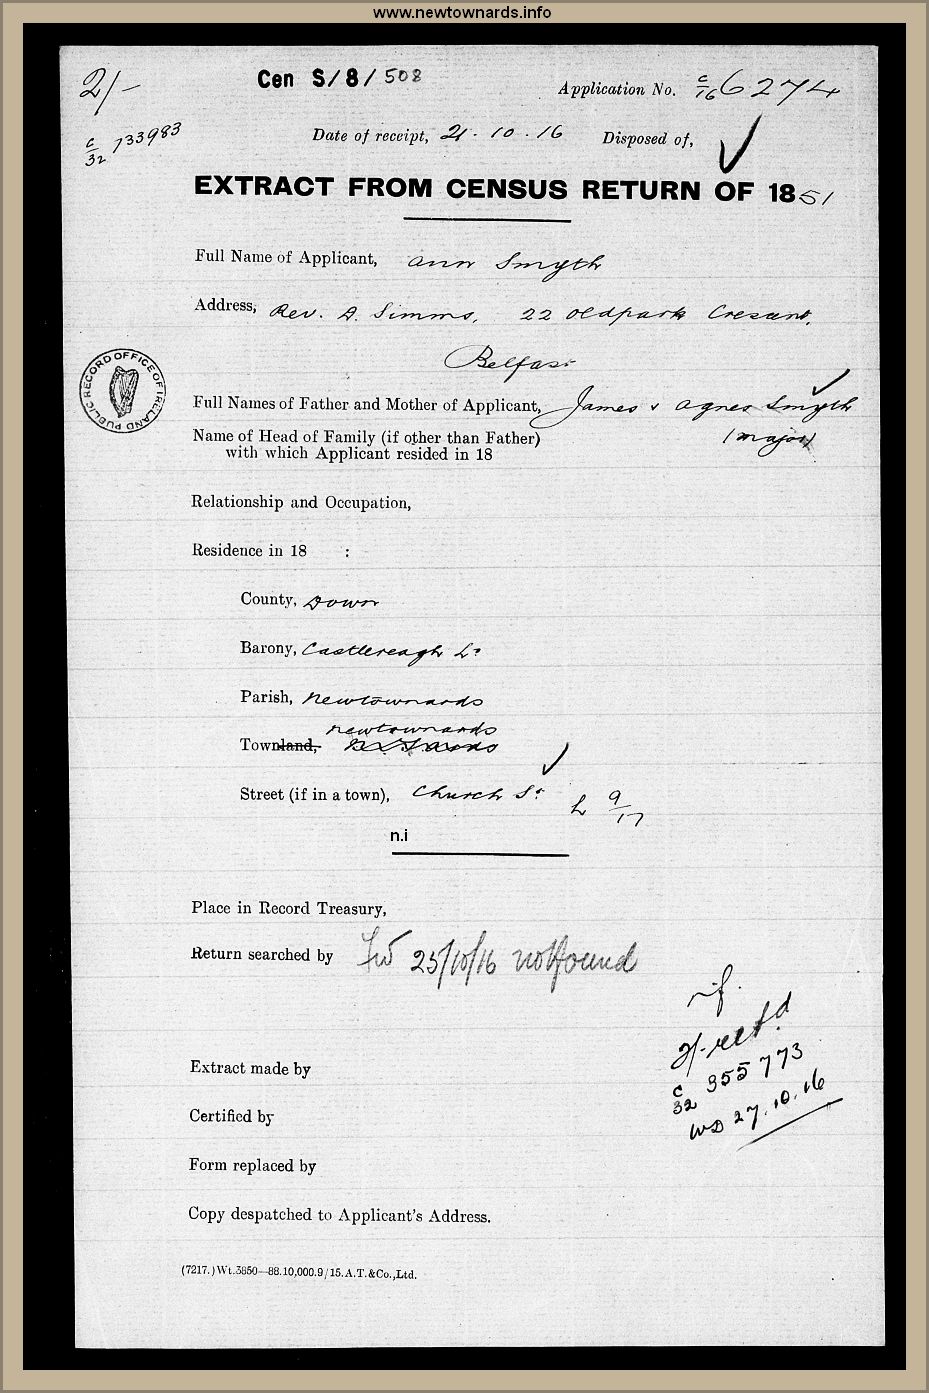 www.newtownards.info
2/-
Cen S/8/508
Application No. c/16 6274
c/32 733983
Date of receipt, 21 . 10 . 16 Disposed of,
EXTRACT FROM CENSUS RETURN OF 1851
Full Name of Applicant, Ann Smyth
Address, Rev. A. Simms, 22 Oldpark Cresent,
Belfast
PUBLIC RECORD OFFICE OF IRELAND
Full Names of Father and Mother of Applicant, James & Agnes Smyth
Name of Head of Family (if other than Father) (major)
with which Applicant resided in 18
Relationship and Occupation,
Residence in 18 :
County, Down
Barony, Castlereagh Lr
Parish, Newtownards
Newtownards
Townland,
Street (if in a town), Church St
L 9/17
n.i
Place in Record Treasury,
Return searched by 25/10/16 not found
n.f.
2/- retd
Extract made by
c/32 355773
WD 27.10.16
Certified by
Form replaced by
Copy despatched to Applicant's Address.
(7217.)Wt.3850—88.10,000.9/15.A.T.&Co.,Ltd.